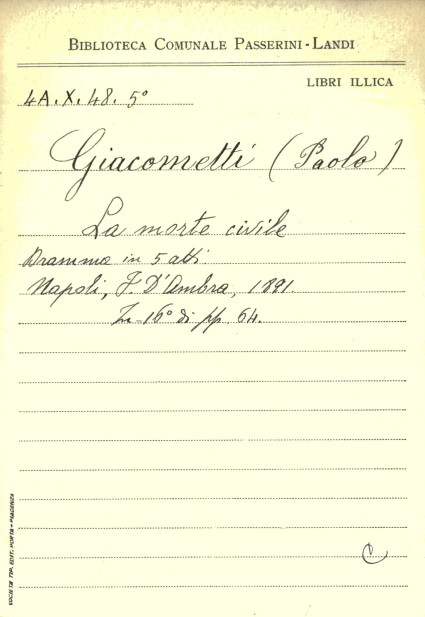 BIBLIOTECA COMUNALE PASSERINI-LANDI
LIBRI ILLICA
4A. X. 48. 5°
Giacometti (Paolo)
La morte civile
Dramma in 5 atti
Napoli, F. D'Ambra, 1891
In 16° di pp. 64.
C
SOCIETÀ TIP. EDIT. PORTA - PIACENZA